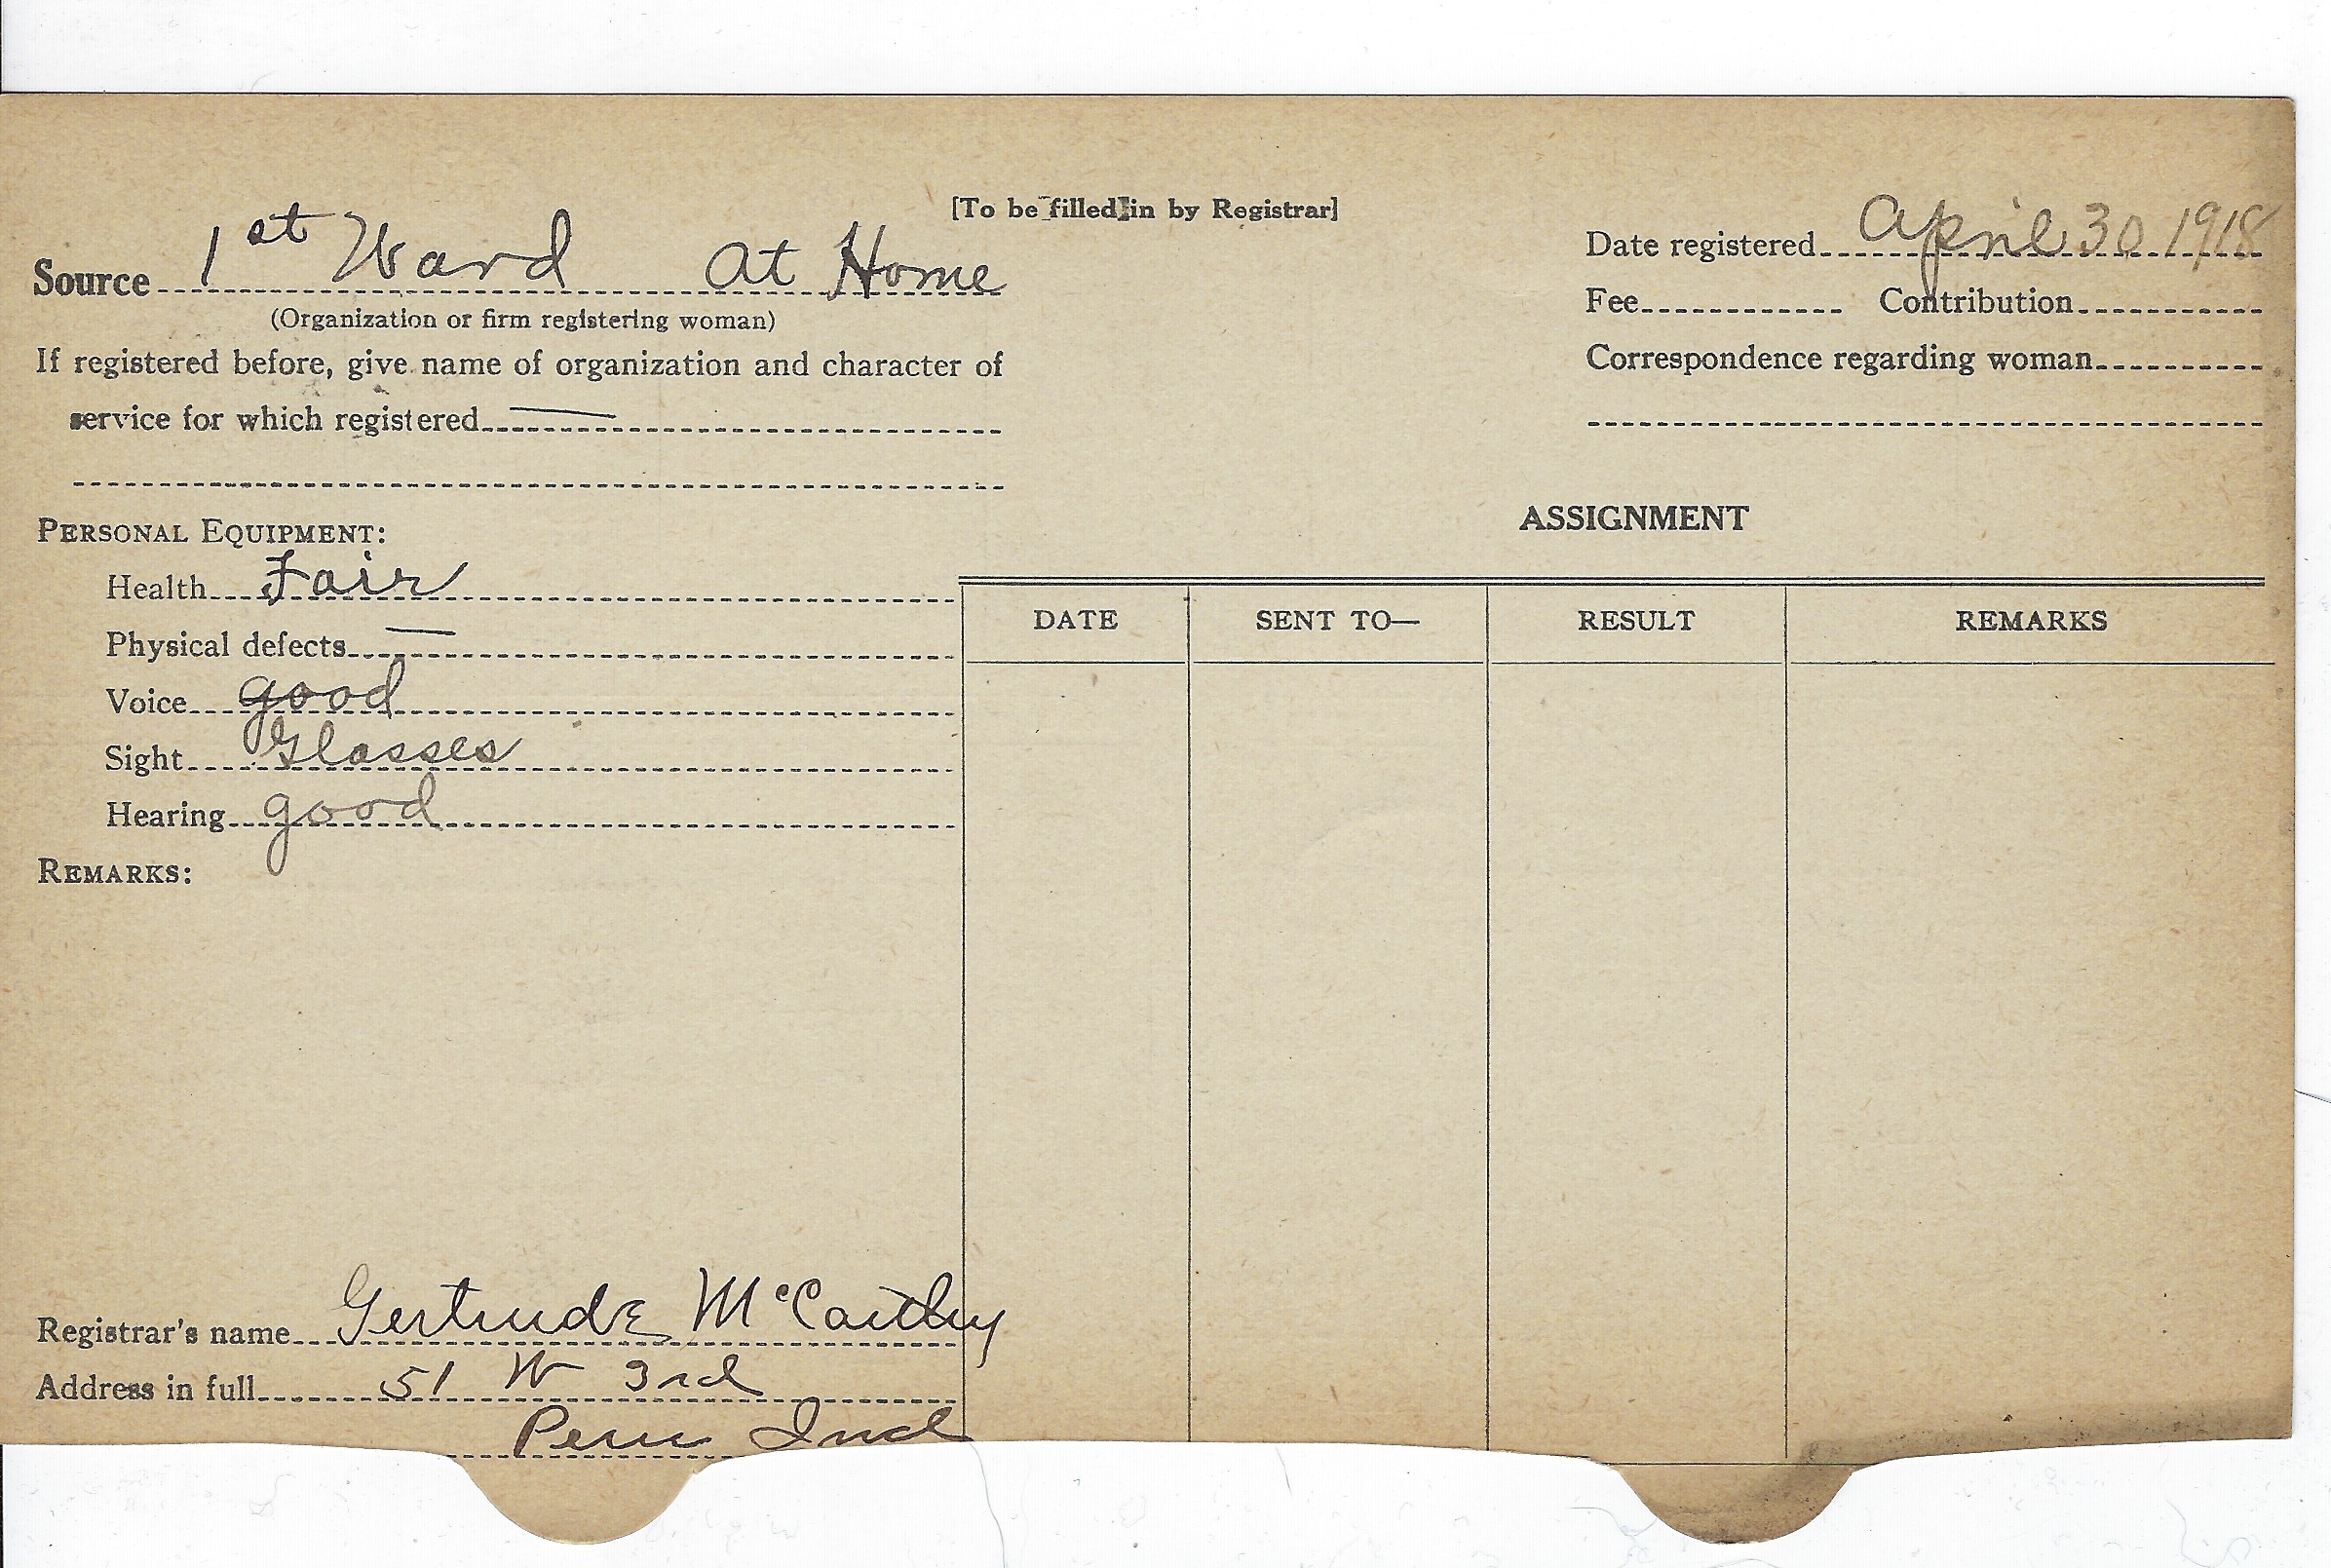 [To be filled in by Registrar]
Source 1st Ward At Home
(Organization or firm registering woman)
If registered before, give name of organization and character of
service for which registered —
Date registered April 30 1918
Fee Contribution
Correspondence regarding woman
PERSONAL EQUIPMENT:
Health Fair
Physical defects —
Voice good
Sight Glasses
Hearing good
REMARKS:
ASSIGNMENT
DATE SENT TO— RESULT REMARKS
Registrar's name Gertrude McCarthy
Address in full 51 W 3rd
Peru Ind